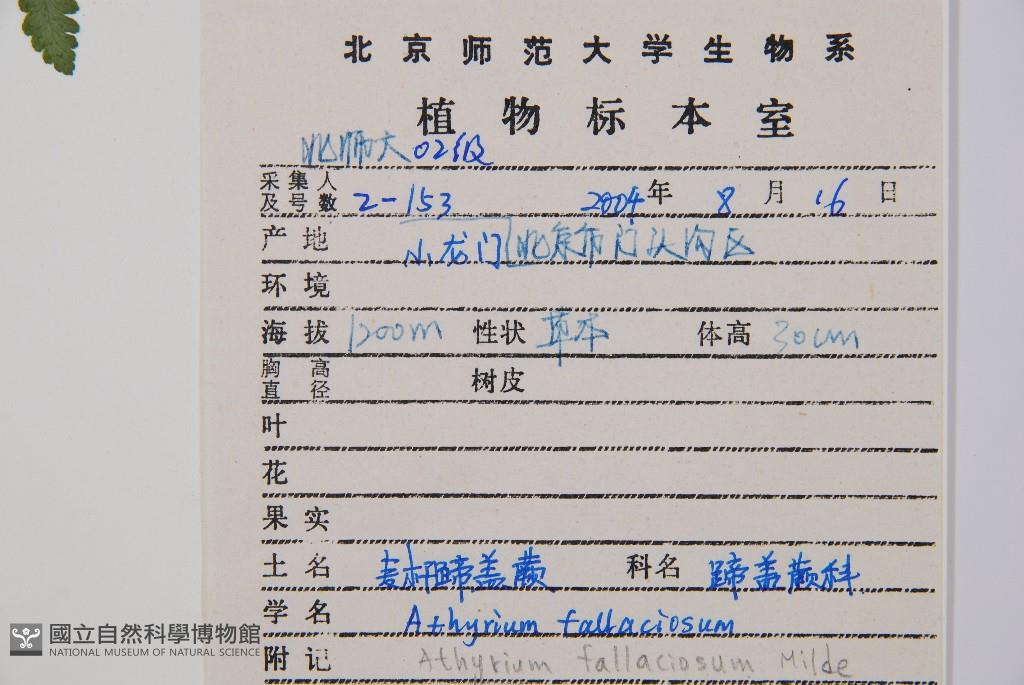 北京师范大学生物系
植物标本室
北师大02级
采集人及号数 2-153 2004年 8月 16日
产地 小龙门 北京市门头沟区
环境
海拔 1200m 性状 草本 体高 30cm
胸高直径 树皮
叶
花
果实
土名 麦秆蹄盖蕨 科名 蹄盖蕨科
学名 Athyrium fallaciosum
附记 Athyrium fallaciosum Milde
國立自然科學博物館
NATIONAL MUSEUM OF NATURAL SCIENCE